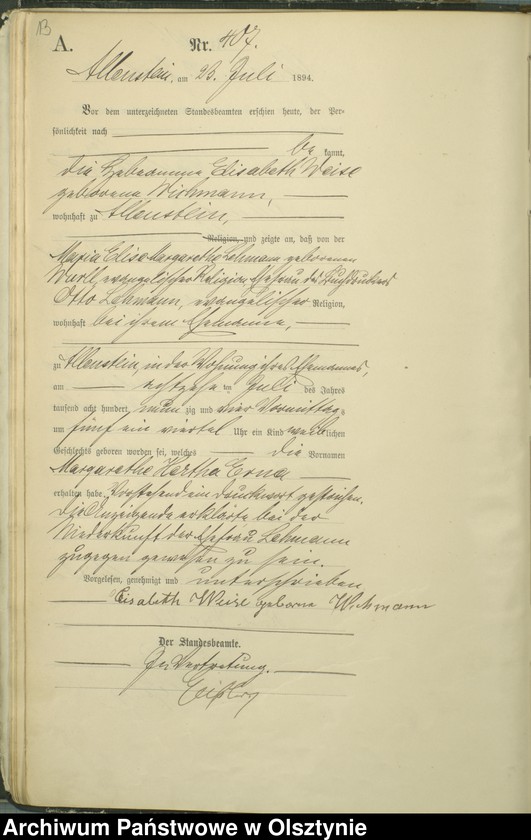 13
A.
Nr. 407.
Allenstein, am 23. Juli 1894.
Vor dem unterzeichneten Standesbeamten erschien heute, der Per-
sönlichkeit nach
be kannt,
die Hebeamme Elisabeth Weise
geborene Wichmann,
wohnhaft zu Allenstein,
Religion, und zeigte an, daß von der
Maria Elise Margarethe Lehmann geborenen
evangelischer Religion Ehefrau des
Otto Lehmann, evangelischer Religion,
wohnhaft bei ihrem Ehemanne,
zu Allenstein, in der Wohnung ihres Ehemannes,
am achtzehn ten Juli des Jahres
tausend acht hundert neun zig und vier Vormittag s
um fünf ein viertel Uhr ein Kind weib lichen
Geschlechts geboren worden sei, welches die Vornamen
Margarethe Hertha Erna
erhalten habe. Vorstehend ein Druckwort gestrichen.
Die Anzeigende erklärte bei der
Niederkunft der Ehefrau Lehmann
zugegen gewesen zu sein.
Vorgelesen, genehmigt und unterschrieben
Elisabeth Weise geborne Wichmann
Der Standesbeamte.
In Vertretung.
Archiwum Państwowe w Olsztynie